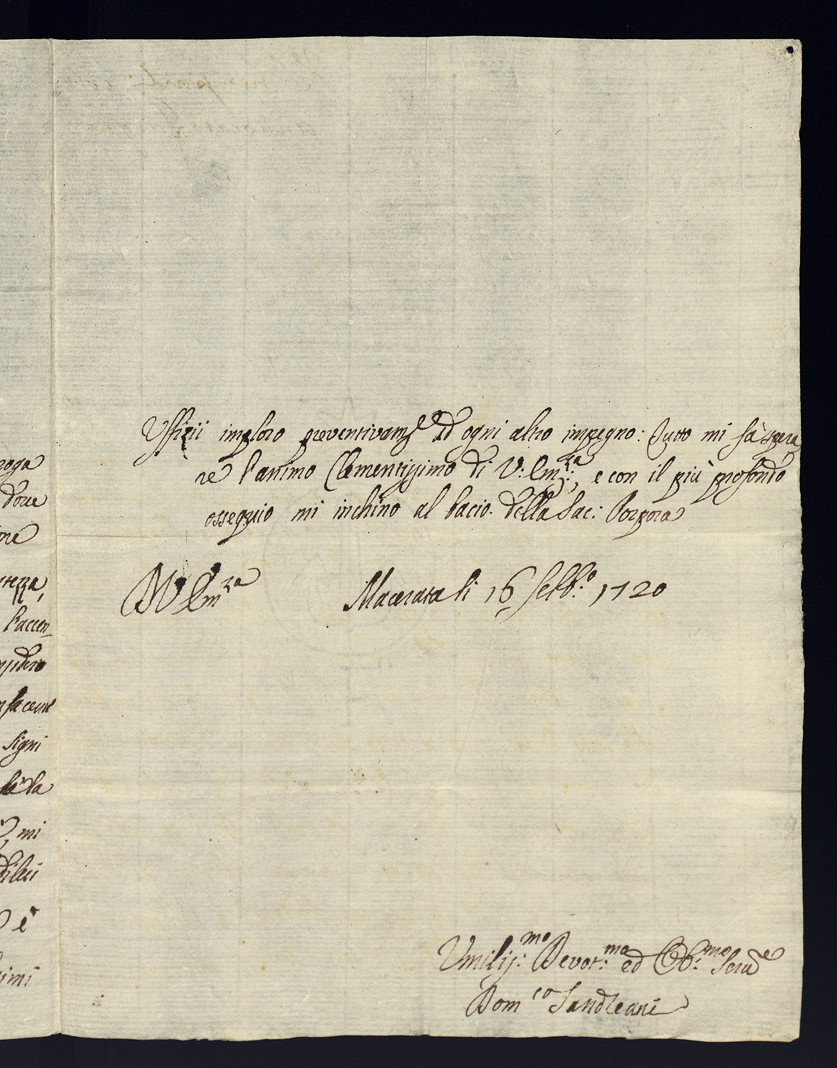 Uffizii imploro preventivam.e d'ogni altro impegno: Tutto mi fà spera
re l'animo Clementissimo di V: Em:za, e con il più profondo
ossequio mi inchino al bacio della Sac: Porpora
D V Em.za Macerata li 16 Settb.e 1720
Umiliss:mo Devot:mo ed Obb:mo Seru.e
Dom.co
roga
ne
tezza,
l'accen
facené
signi
, mi
è
simi